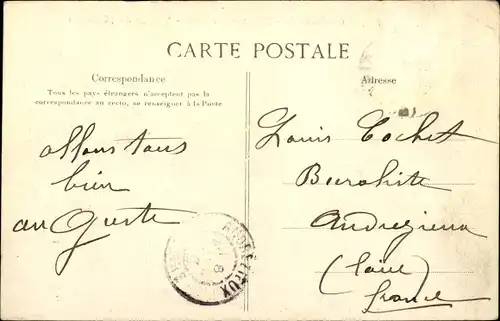 CARTE POSTALE
Correspondance
Tous les pays étrangers n'acceptent pas la
correspondance au recto, se renseigner à la Poste
Adresse
allons tous
bien
Louis Cochet
Andrézieux
(Loire)
France
ANDREZIEUX